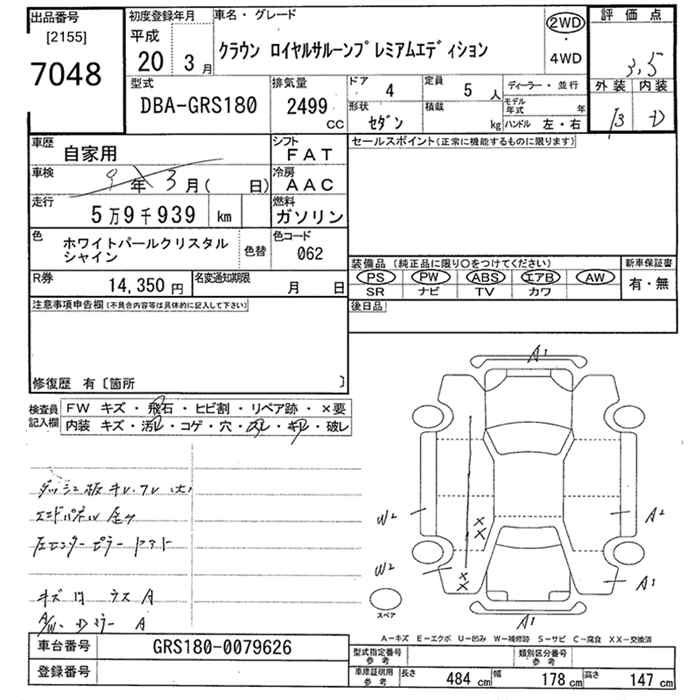 出品番号
[2155]
7048
初度登録年月
平成
20 3月
車名・グレード
クラウン ロイヤルサルーンプレミアムエディション
2WD
・
4WD
評価点
3,5
外装 内装
B D
型式
DBA-GRS180
排気量
2499
CC
ドア 4
定員 5 人
形状 セダン
積載 kg
ディーラー・並行
モデル年式 年
ハンドル 左・右
車歴 自家用
シフト FAT
車検 9年3月( 日)
冷房 AAC
走行 5万9千939 km
燃料 ガソリン
色 ホワイトパールクリスタルシャイン
色替
色コード 062
R券 14,350 円
名変通知期限 月 日
セールスポイント(正常に機能するものに限ります)
装備品(純正品に限り○をつけてください)
PS PW ABS エアB AW
SR ナビ TV カワ
新車保証書
有・無
後日品
注意事項申告欄(不具合内容等は具体的に記入して下さい)
修復歴 有〔箇所 〕
検査員記入欄
FW キズ・飛石・ヒビ割・リペア跡・×要
内装 キズ・汚レ・コゲ・穴・スレ・キレ・破レ
A1
W2
W2
A2
A1
A1
スペア
A-キズ E-エクボ U-凹み W-補修跡 S-サビ C-腐食 XX-交換済
車台番号 GRS180-0079626
登録番号
型式指定番号 参考
類別区分番号 参考
車庫証明用 参考
長さ 484 cm 幅 178 cm 高さ 147 cm